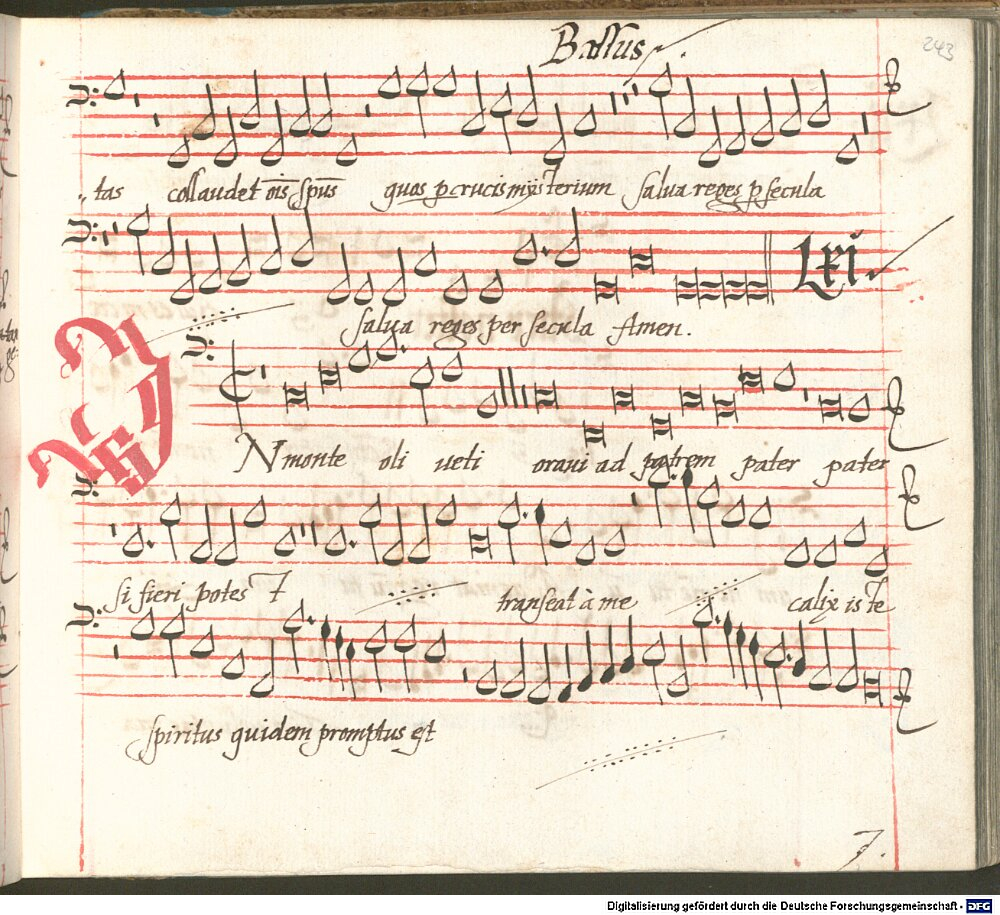 Bassus
243
tas collaudet oīs spūs quos p crucis mysterium salua reges p secula
salua reges per secula Amen.
Lxi
IN monte oli ueti oraui ad patrem pater pater
si fieri potest transeat à me calix iste
spiritus quidem promptus est
Digitalisierung gefördert durch die Deutsche Forschungsgemeinschaft - DFG